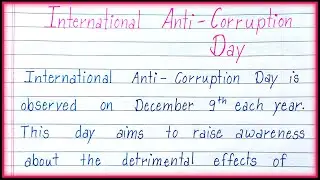 International Anti-Corruption
Day
International Anti-Corruption Day is
observed on December 9th each year.
This day aims to raise awareness
about the detrimental effects of